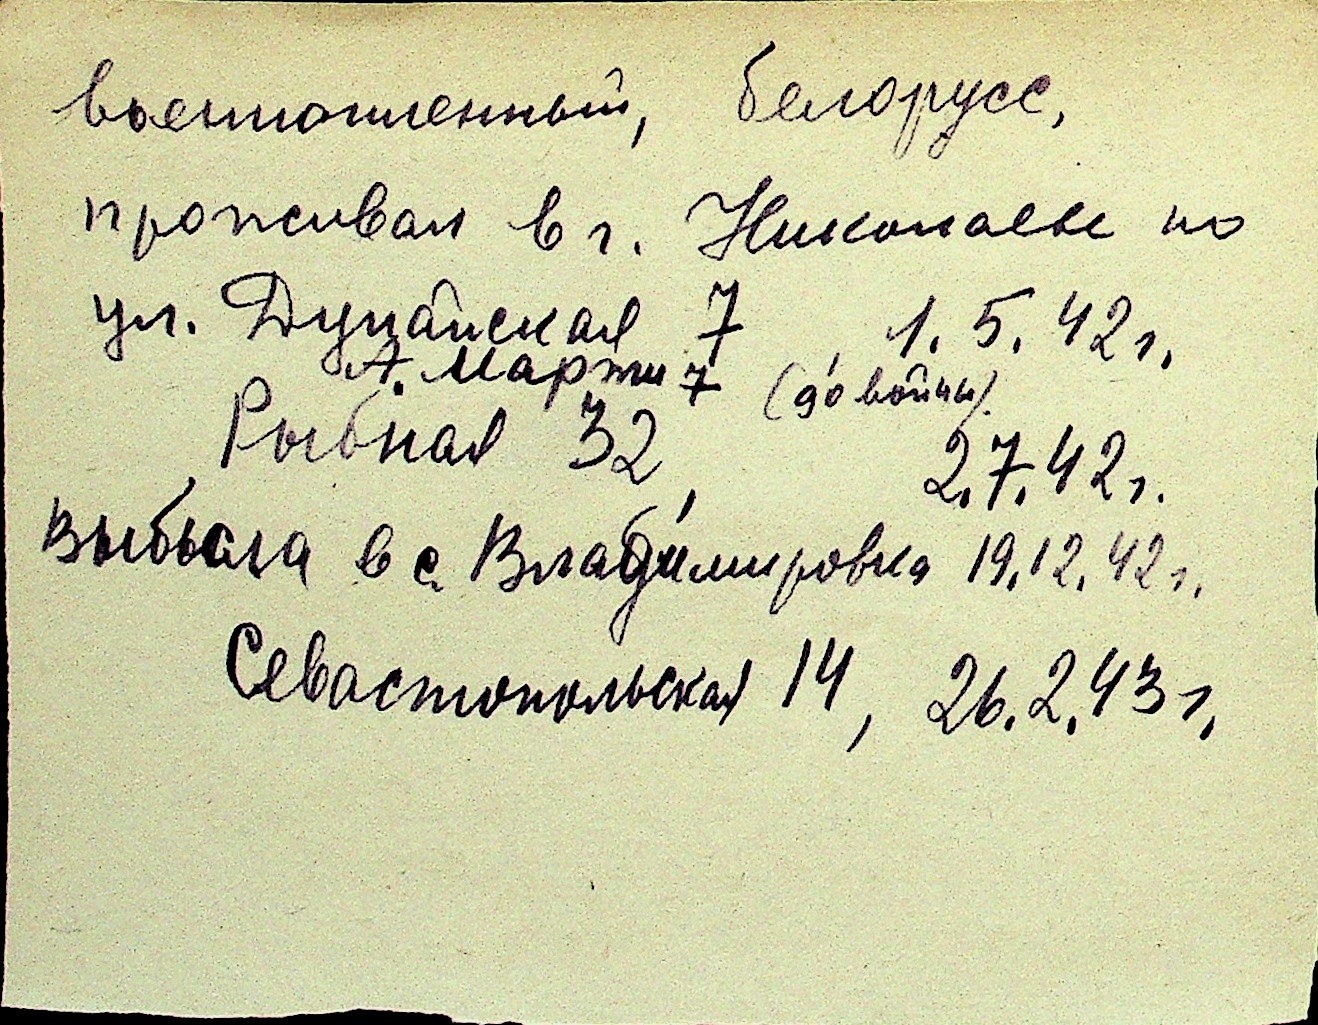 военнопленный, белорусс,
проживал в г. Николаеве по
ул. Дунайская 7, 1.5.42 г.
А. Марти 7 (до войны).
Рыбная 32, 2.7.42 г.
Выбыла в с. Владимировка 19.12.42 г.
Севастопольская 14, 26.2.43 г.